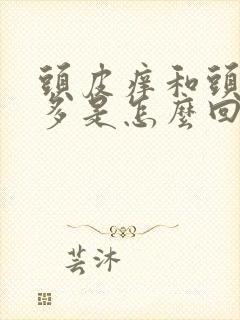 頭皮痒和頭
多是怎麼回
芸沐